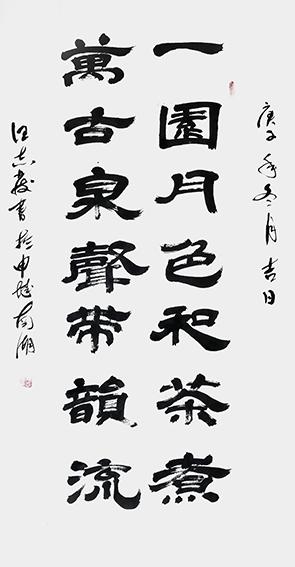 庚子年冬月吉日
一園月色和茶煮
萬古泉聲带韻流
志書於申城南湖